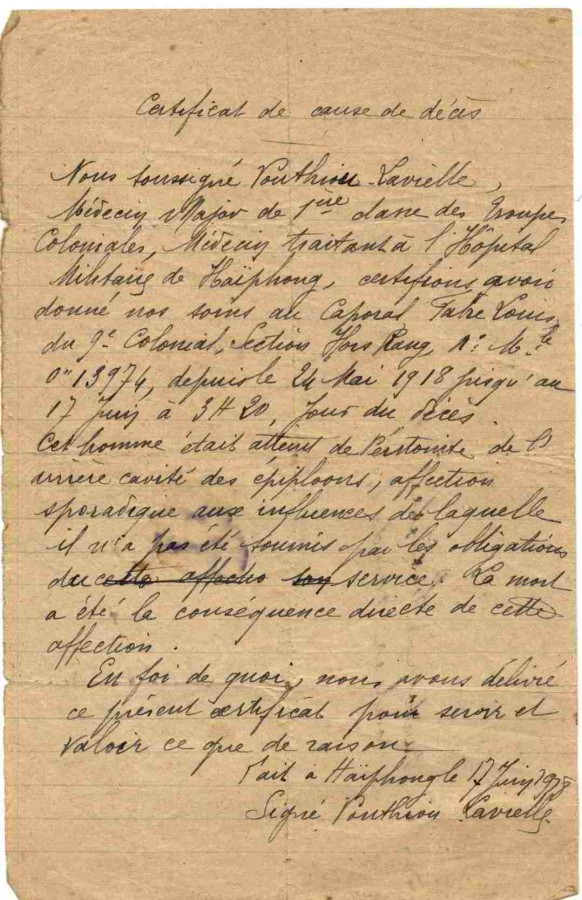 Certificat de cause de décès
Nous soussigné Pouthiou-Lavielle,
Médecin Major de 1ère classe des Troupes
Coloniales, Médecin traitant à l'Hôpital
Militaire de Haïphong, certifions avoir
donné nos soins au Caporal Fabre Louis,
du 9e Colonial, Section Hors Rang n° Mle
0"13974, depuis le 24 Mai 1918 jusqu'au
17 Juin à 3H20, Jour du décès.
Cet homme était atteint de Péritonite de l'
arrière cavité des épiploons, affection
sporadique aux influences de laquelle
il n'a pas été soumis par les obligations
du cette affectio son service. La mort
a été la conséquence directe de cette
affection.
En foi de quoi, nous avons délivré
ce présent certificat pour servir et
valoir ce que de raison.
Fait à Haïphong le 17 Juin
Signé Pouthiou Lavielle